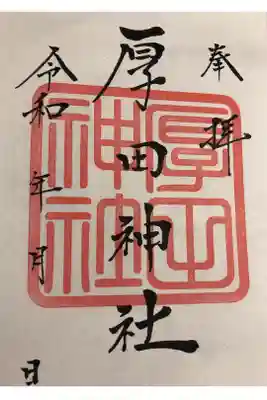 奉拝
厚田神社
令和 年 月 日
厚田
神社